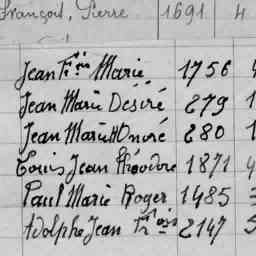 François, Pierre 1691 4
Jean Fçois Marie 1756 4
Jean Marie Désiré 279 1
Jean Marie Honoré 280 1
Louis Jean Théodore 1871 4
Paul Marie Roger 1485 3
Adolphe Jean Fçois 2147 5